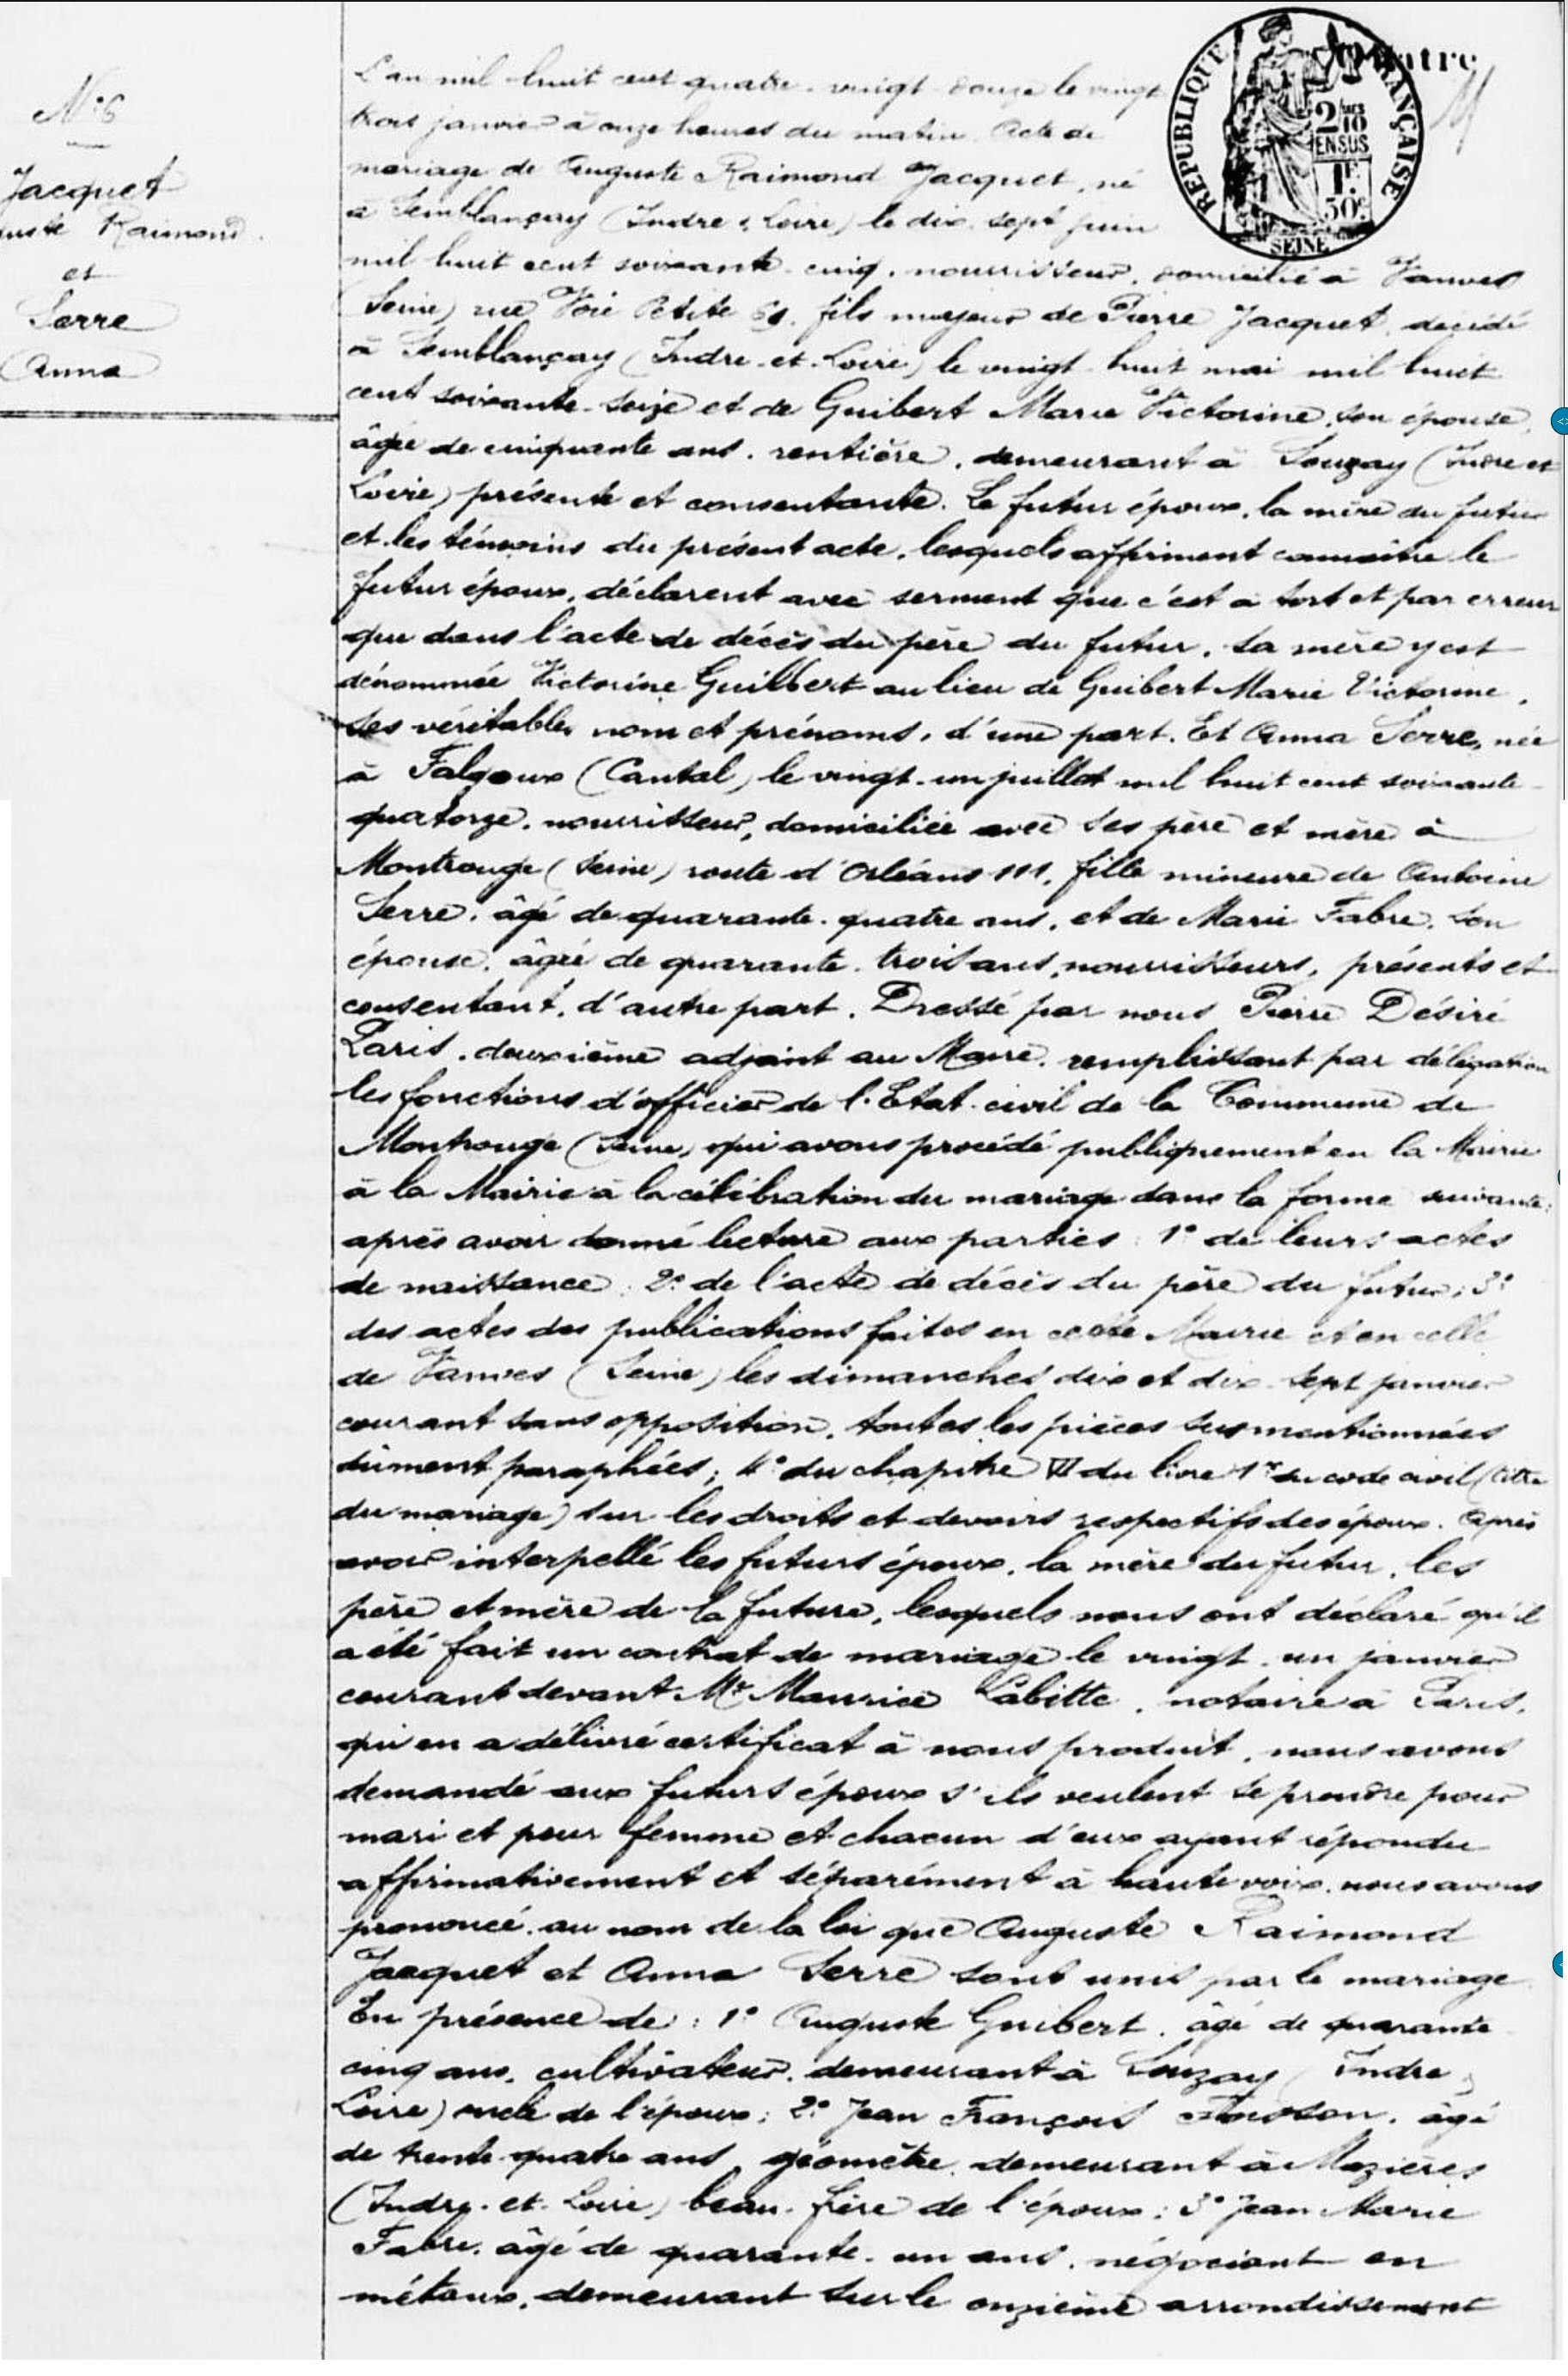 N° 6
Jacquet
uste Raimond.
et
Serre
Anna
RÉPUBLIQUE FRANÇAISE
2/10mes
EN SUS
1F
50c
SEINE
L'an mil huit cent quatre-vingt-douze le vingt
trois janvier à onze heures du matin. Acte de
mariage de Auguste Raimond Jacquet, né
à Semblançay (Indre & Loire) le dix-sept juin
mil huit cent soixante-cinq, nourrisseur, domicilié à Vanves
(Seine) rue Voie Petite, fils majeur de Pierre Jacquet, décédé
à Semblançay (Indre-et-Loire) le vingt-huit mai mil huit
cent soixante-seize et de Guibert Marie Victorine, son épouse,
âgée de cinquante ans, rentière, demeurant à Souzay (Indre et
Loire) présente et consentante. Le futur époux, la mère du futur
et les témoins du présent acte, lesquels affirment connaître le
futur époux, déclarent avec serment que c'est à tort et par erreur
que dans l'acte de décès du père du futur, sa mère y est
dénommée Victorine Guilbert au lieu de Guibert Marie Victorine,
ses véritables nom et prénoms, d'une part. Et Anna Serre, née
à Falgoux (Cantal) le vingt-un juillet mil huit cent soixante-
quatorze, nourrisseur, domiciliée avec ses père et mère à
Montrouge (Seine) route d'Orléans 111, fille mineure de Antoine
Serre, âgé de quarante-quatre ans, et de Marie Fabre, son
épouse, âgée de quarante-trois ans, nourrisseurs, présents et
consentant, d'autre part. Dressé par nous Pierre Désiré
Paris, deuxième adjoint au Maire, remplissant par délégation
les fonctions d'officier de l'Etat-civil de la Commune de
Montrouge (Seine) qui avons procédé publiquement en la Mairie
à la Mairie à la célébration du mariage dans la forme suivante:
après avoir donné lecture aux parties 1° de leurs actes
de naissance; 2° de l'acte de décès du père du futur; 3°
des actes des publications faites en cette Mairie et en celle
de Vanves (Seine) les dimanches dix et dix-sept janvier
courant sans opposition, toutes les pièces susmentionnées
dûment paraphées; 4° du chapitre VI du livre 1er du code civil (titre
du mariage) sur les droits et devoirs respectifs des époux. Après
avoir interpellé les futurs époux, la mère du futur, les
père et mère de la future, lesquels nous ont déclaré qu'il
a été fait un contrat de mariage le vingt-un janvier
courant devant Me Maurice Labitte, notaire à Paris,
qui en a délivré certificat à nous produit, nous avons
demandé aux futurs époux s'ils veulent se prendre pour
mari et pour femme et chacun d'eux ayant répondu
affirmativement et séparément à haute voix, nous avons
prononcé au nom de la loi que Auguste Raimond
Jacquet et Anna Serre sont unis par le mariage
En présence de: 1° Auguste Guibert, âgé de quarante
cinq ans, cultivateur, demeurant à Souzay (Indre &
Loire) oncle de l'époux; 2° Jean François, âgé
de trente-quatre ans, géomètre, demeurant à Mazières
(Indre-et-Loire) beau-frère de l'époux; 3° Jean Marie
Fabre, âgé de quarante-un ans, négociant en
métaux, demeurant sur le onzième arrondissement